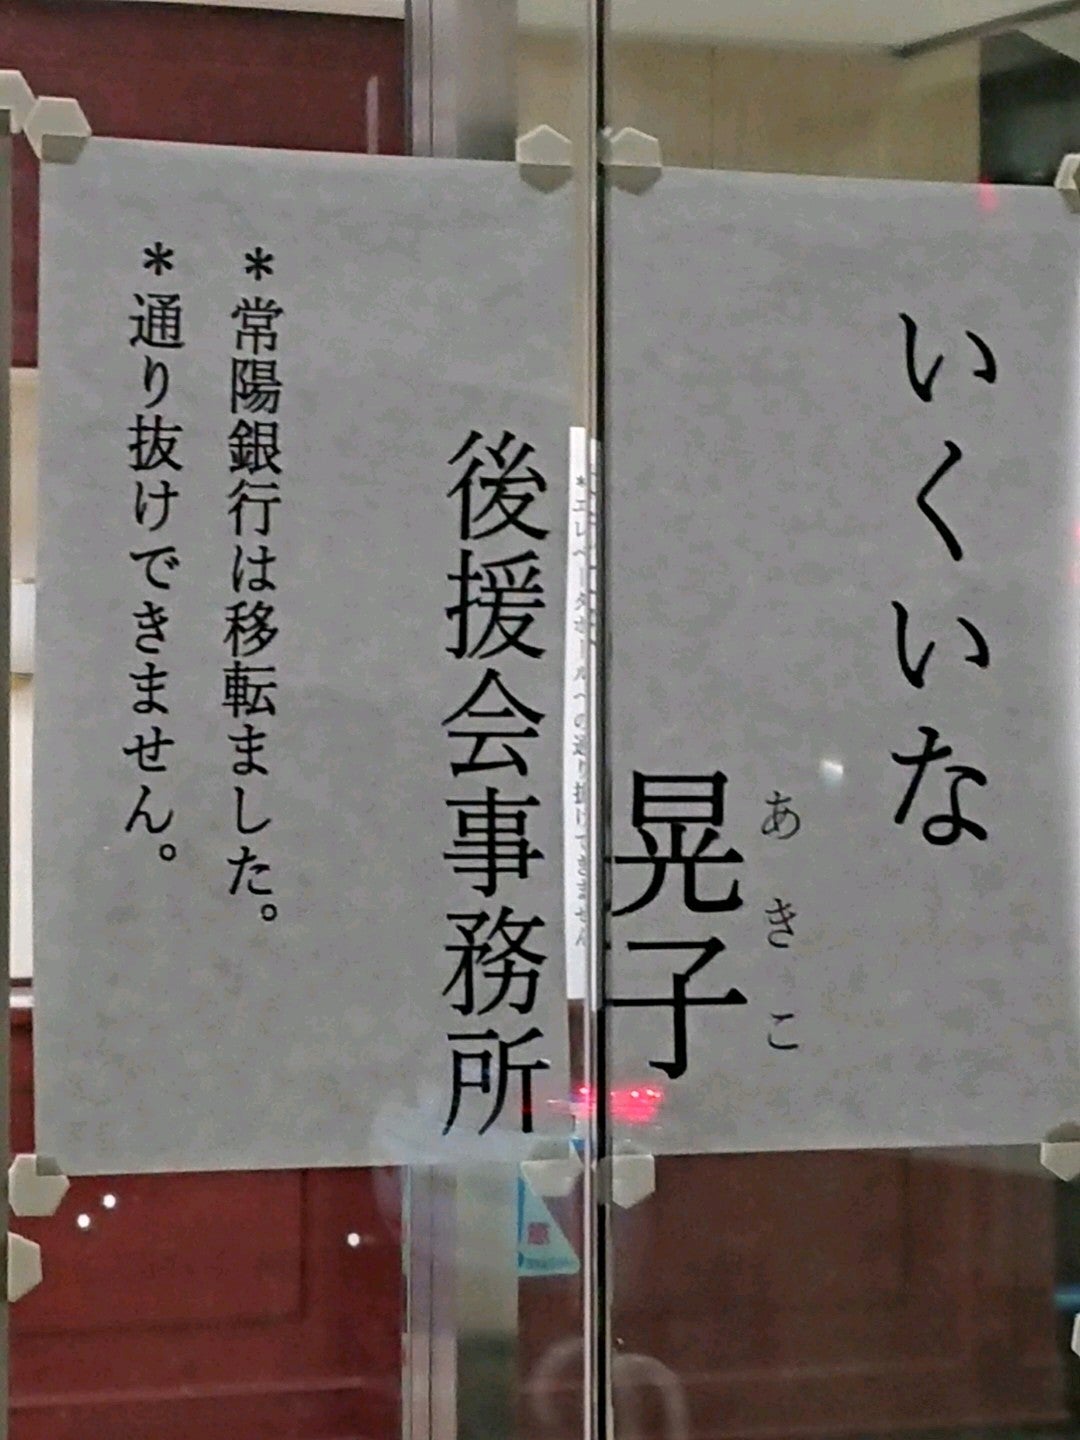 いくいな
あきこ
晃子
後援会事務所
＊常陽銀行は移転ました。
＊通り抜けできません。
＊エレベータホールへの通り抜けできません